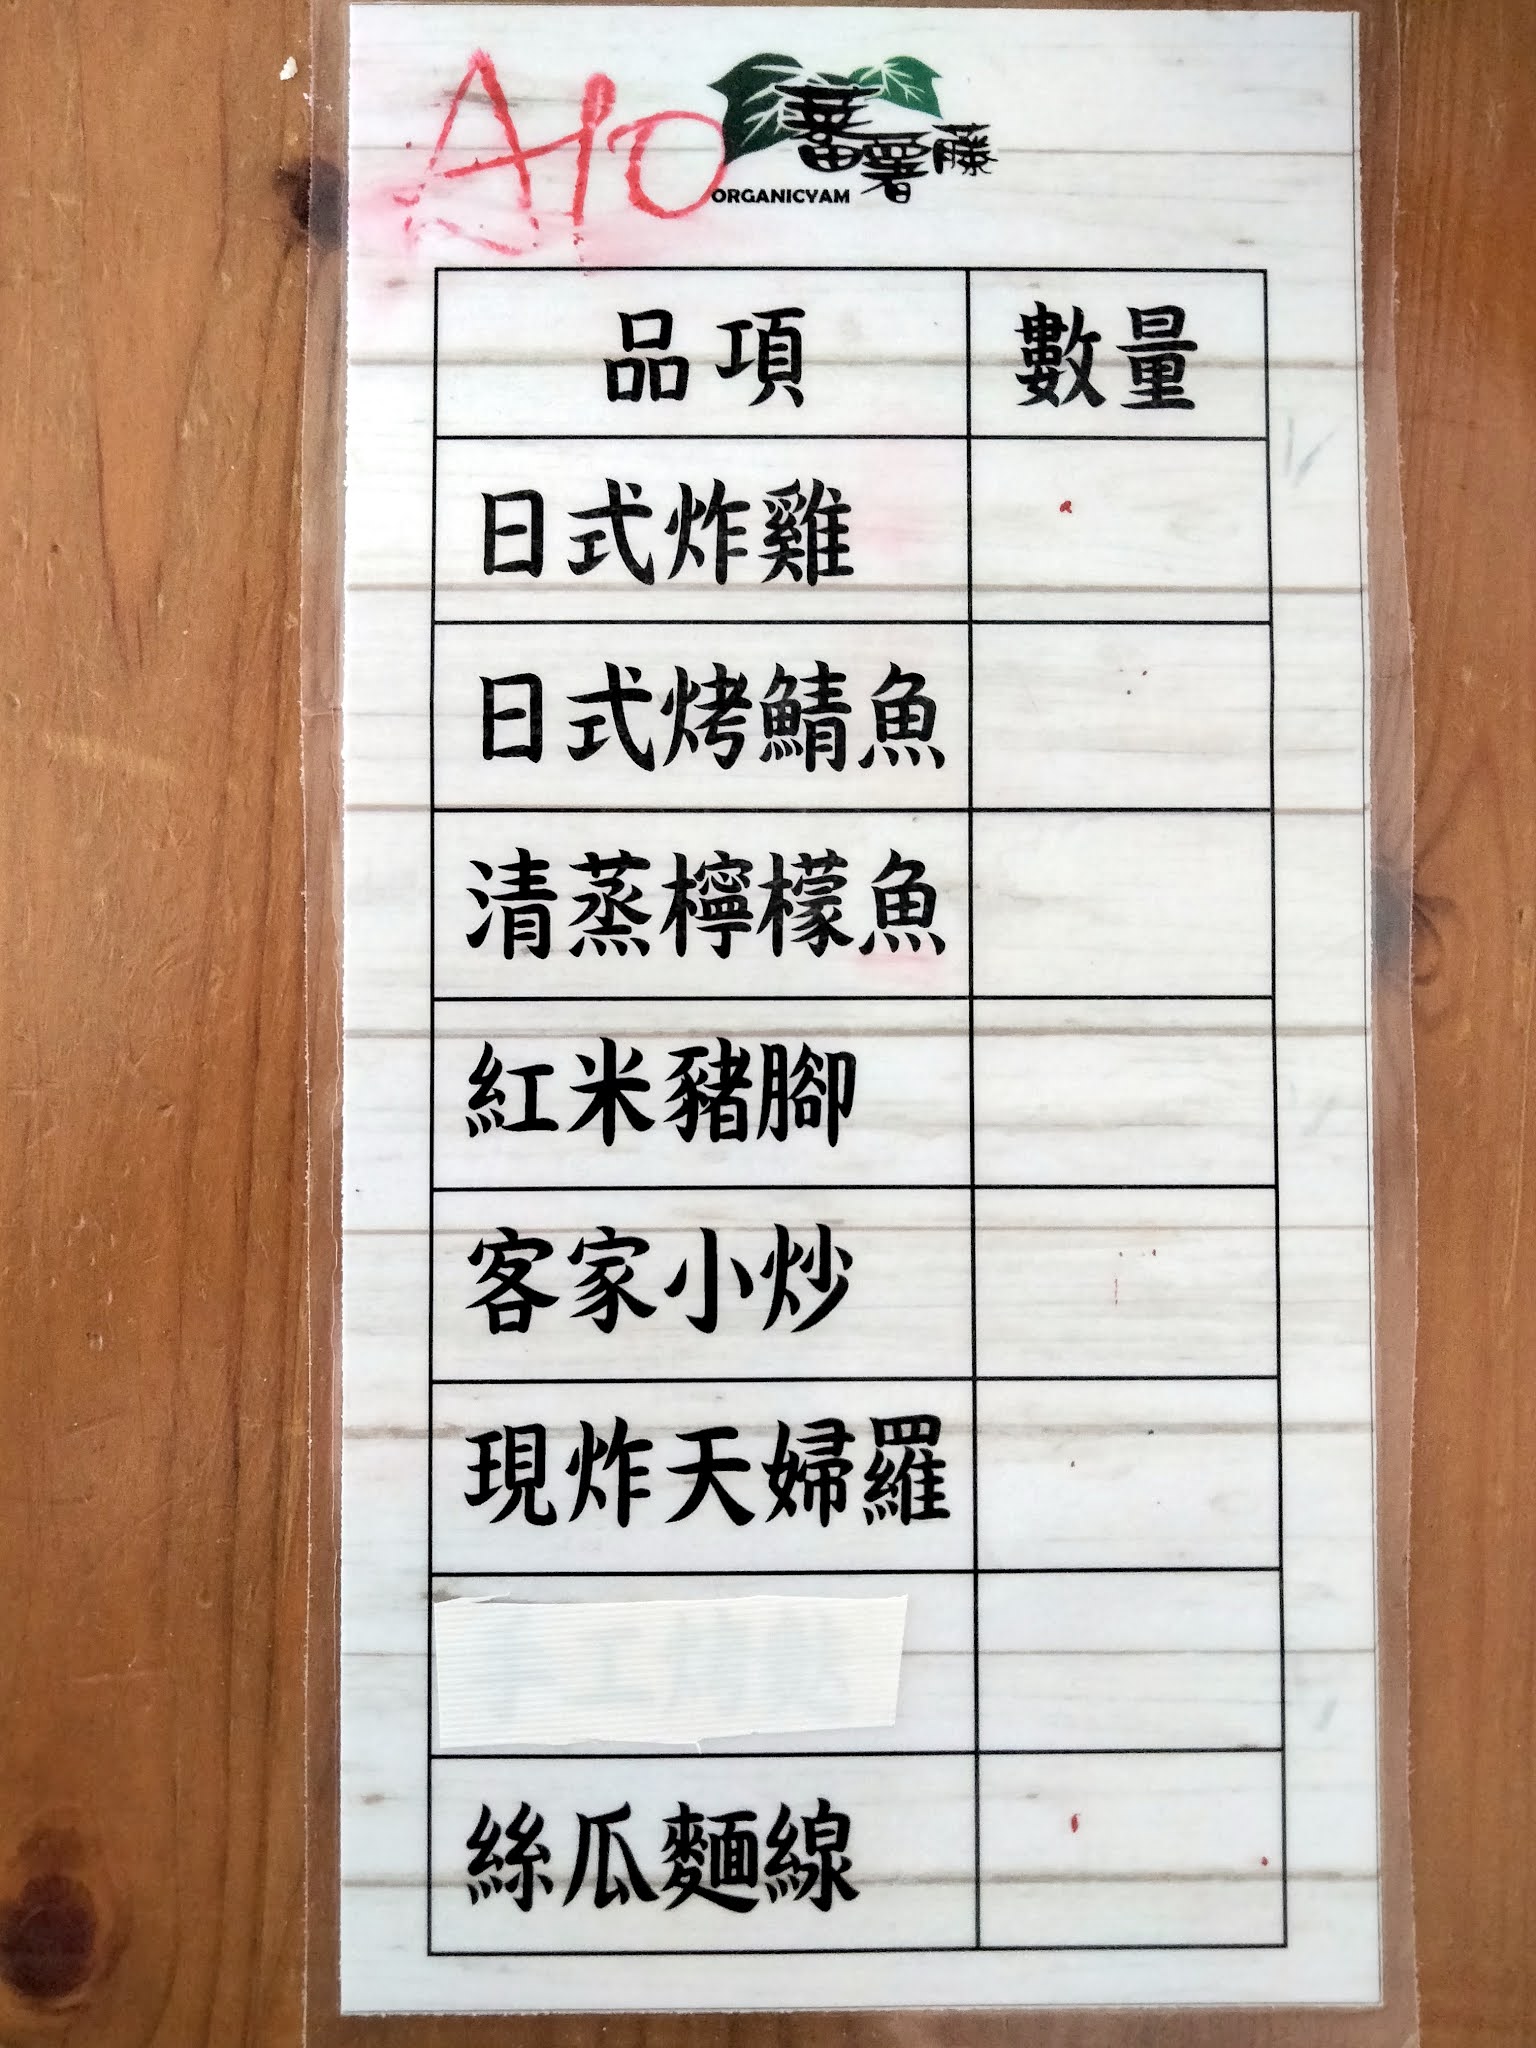 A10
蕃薯藤
ORGANICYAM
品項 數量
日式炸雞
日式烤鯖魚
清蒸檸檬魚
紅米豬腳
客家小炒
現炸天婦羅
絲瓜麵線